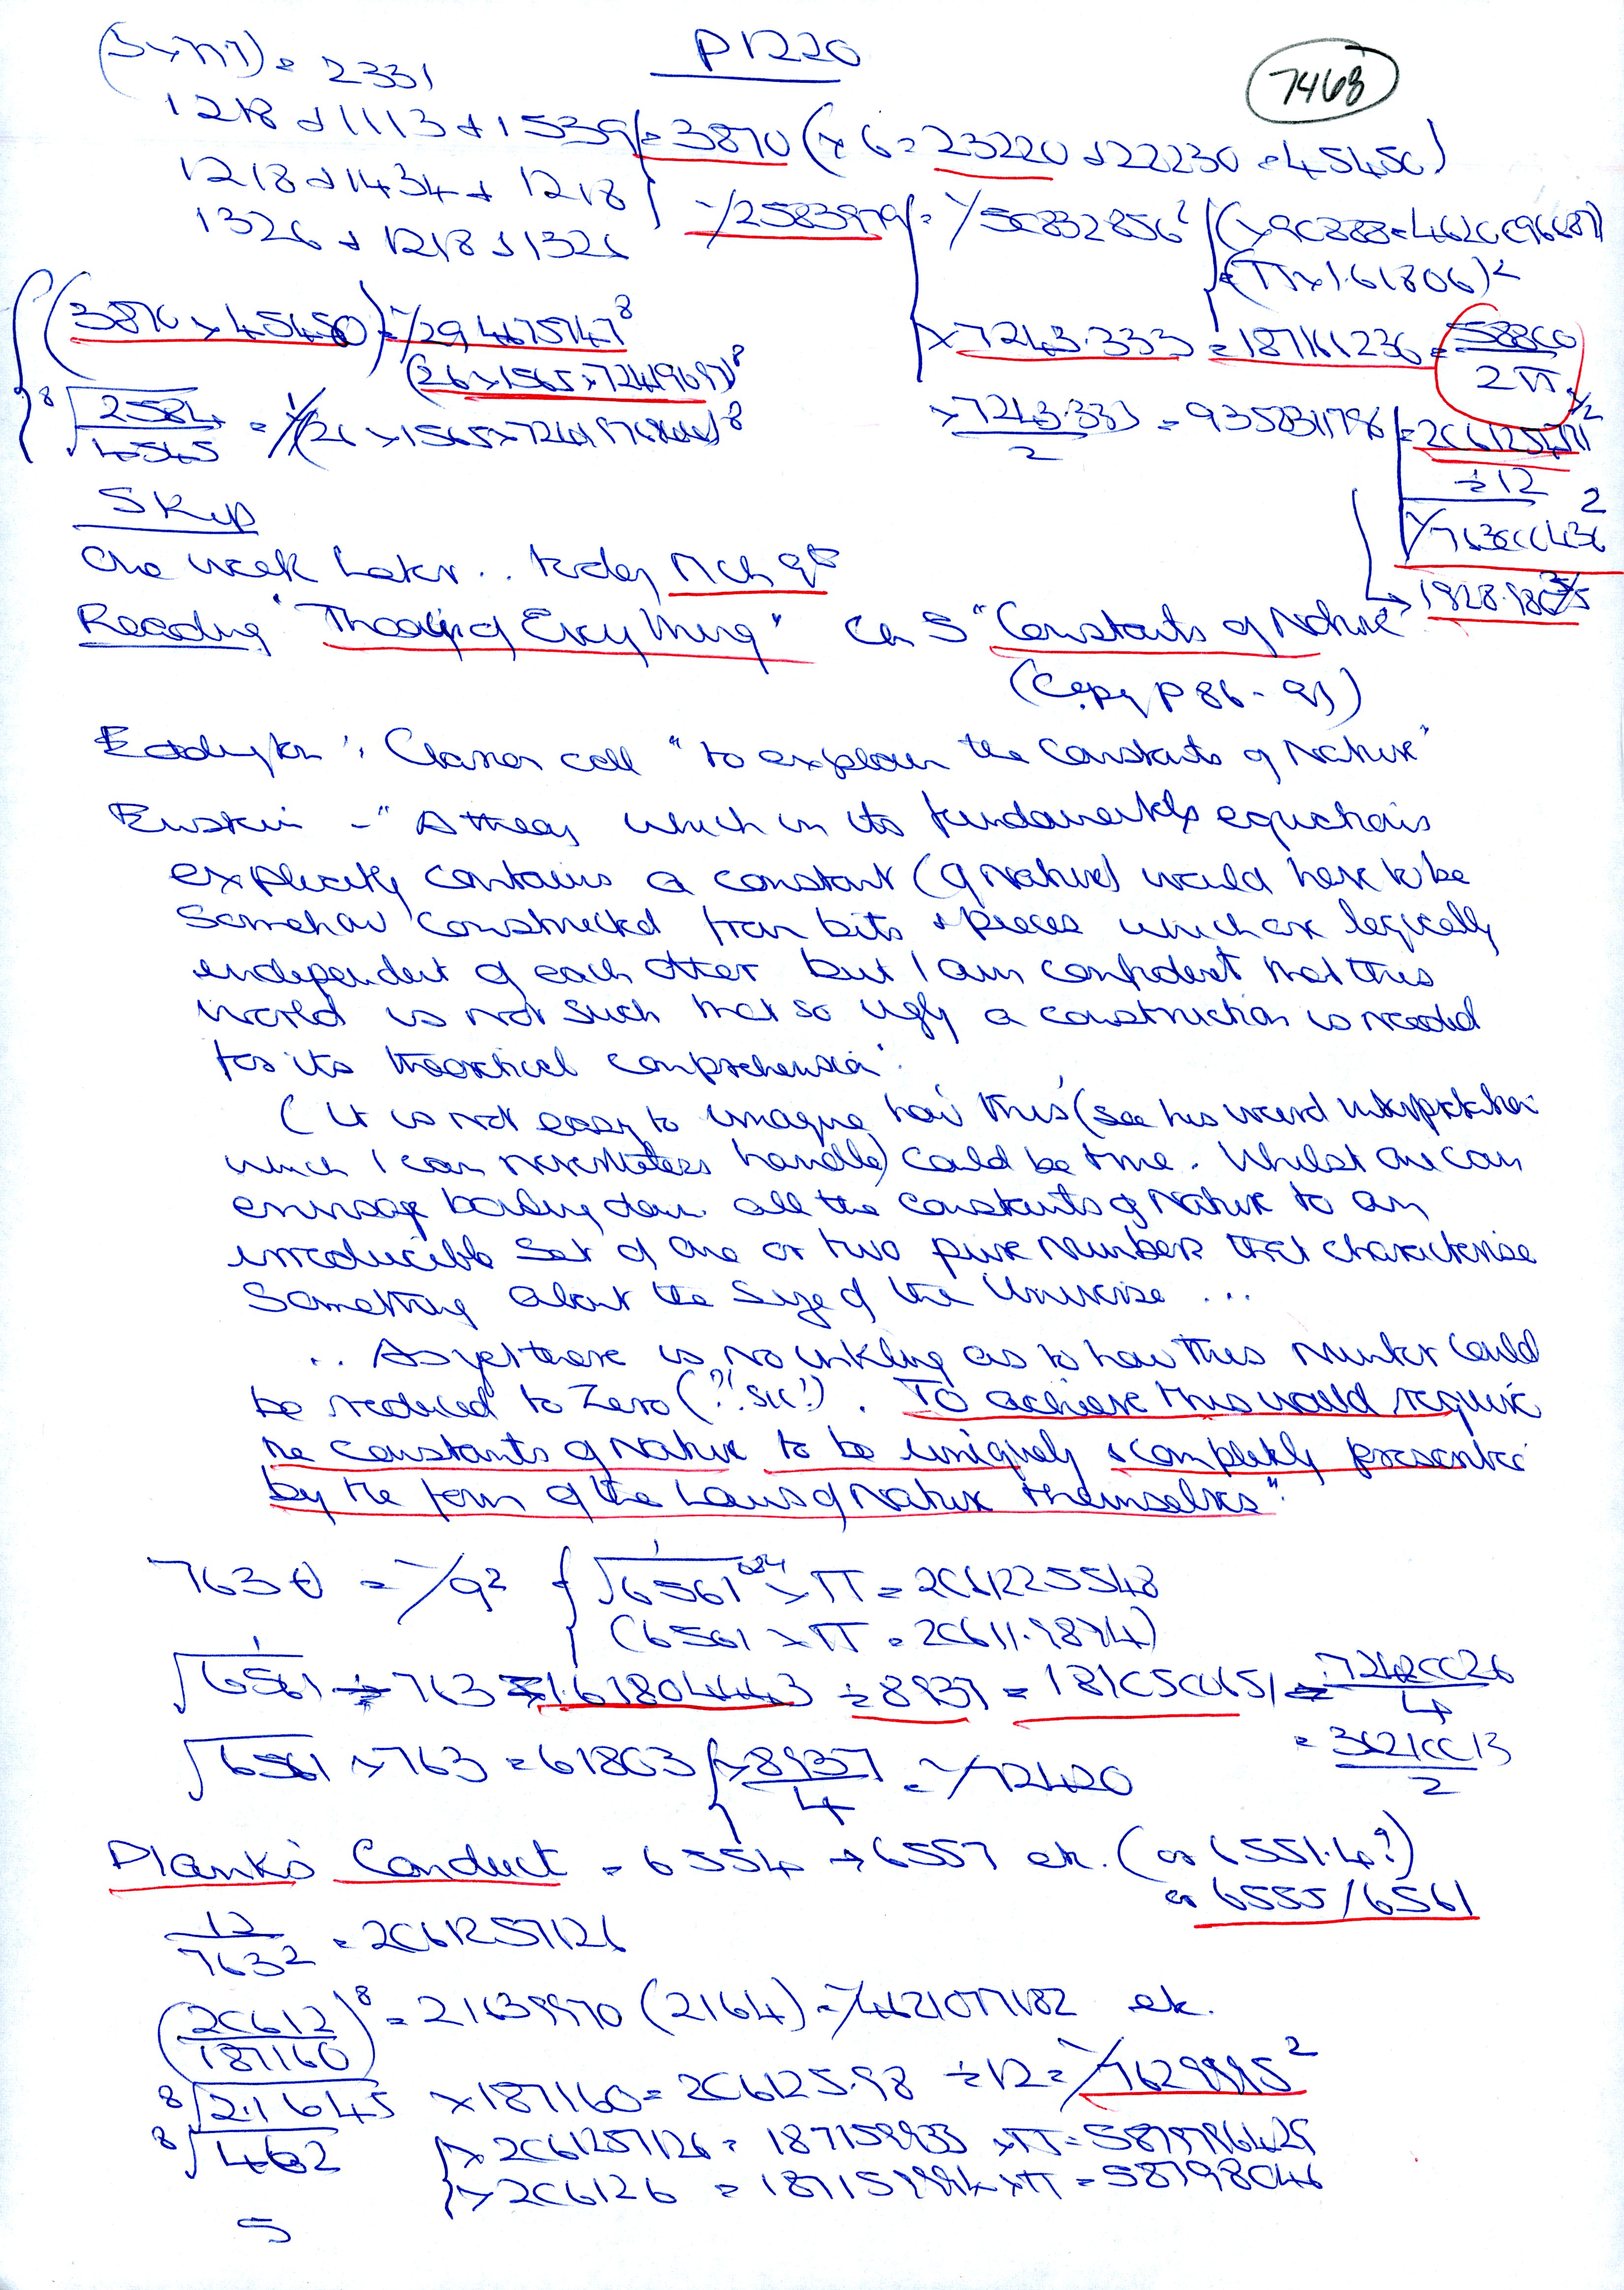 P1220
7468
(3 x 777) = 2331
1218 + 1113 + 1539 = 3870 (x 6 = 23220 + 22230 = 45450)
1218 + 1434 + 1218
1326 + 1218 + 1326
1/2583979 = 1/50832856²
(π x 1.61806)²
(3870 x 45450) = 1/294675747⁸
x 7243.333 = 187161236 = 58800 / 2π
x 7243.333 / 2 = 935831796
⁸√2584/4545
÷ 12
Skip
One week later.. today Mch 9th
Reading "Theories of Everything" Ch 5 "Constants of Nature"
(Copy P 86 - 91)
Eddington's Clarion call "to explain the Constants of Nature"
Einstein - "A theory which in its fundamental equations
explicitly contains a constant (of Nature) would have to be
somehow constructed from bits & pieces which are logically
independent of each other but I am confident that this
world is not such that so ugly a construction is needed
for its theoretical comprehension".
(It is not easy to imagine how this (see his weird interpretation
which I can nevertheless handle) could be true. Whilst one can
envisage boiling down all the constants of Nature to an
irreducible set of one or two pure numbers that characterise
something about the size of the Universe ...
.. As yet there is no inkling as to how this number could
be reduced to Zero (?! sic!). To achieve this would require
the constants of Nature to be uniquely & completely
by the form of the Laws of Nature themselves".
x π = 2061225548
(6561 x π = 20611.9894)
√6561 ÷ 763 = 1.61804443 ÷ 8937 = 181050651 = 72420026 / 4
= 36210013 / 2
√6561 x 763 = 61803 x 8937 / 4 = 1/72420
Planks Conduct = 6554 → 6557 etc. (or 6551.4?)
or 6555/6561
12 / 763² = 2061257126
(20612 / 187160)⁸ = 21639970 (2164) = 1/4621077182 etc.
⁸√2.1645 x 187160 = 206125.98 ÷ 12 = 1/7629995²
⁸√462 x 2061257126 = 187159933 x π = 5879786429
x 206126 = x π = 58798046
5